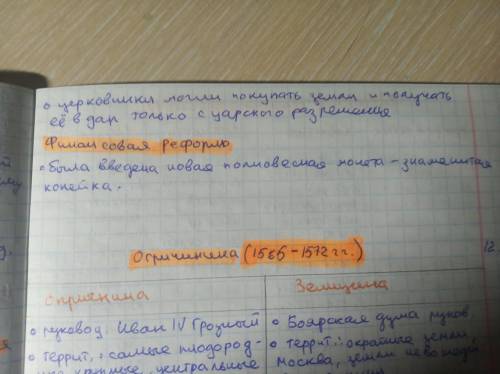 • церковники могли покупать земли и получать
её в дар только с царского разрешения
Финансовая реформа
• Была введена новая полновесная монета - знаменитая
копейка.
Опричнина (1565-1572 гг.)
12
Опричнина
Земщина
• руковод. Иван IV Грозный
• Боярская дума руков
• террит.: самые плодород-
• террит.: окраинные земли,
крупные, центральные
Москва, земли